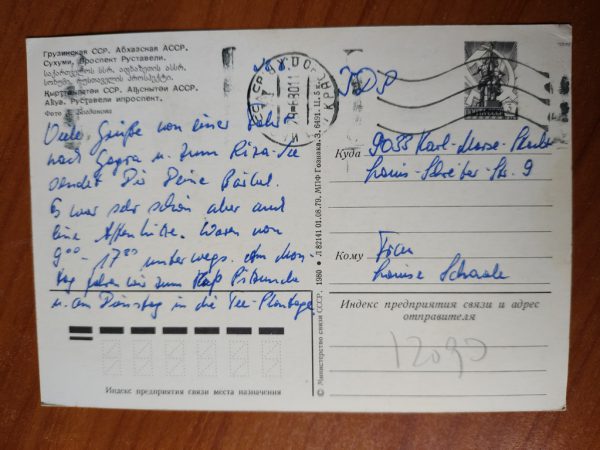 Грузинская ССР. Абхазская АССР.
Сухуми. Проспект Руставели.
საქართველოს სსრ. აფხაზეთის ასსრ.
სოხუმი. რუსთაველის პროსპექტი.
Қырҭтәылатәи ССР. Аԥснытәи АССР.
Аҟәа. Руставели ипроспект.
Фото
Viele Grüße von einer Fahrt
nach Gagra u. zum Riza-See
sendet Dir Deine Bärbel.
Es war sehr schön aber auch
eine Affenhitze. Waren von
9⁰⁰ - 17⁰⁰ unterwegs. Am Mon-
tag fahren wir zum Kap Pizunda
u. am Dienstag in die Tee-Plantage.
Индекс предприятия связи места назначения
© Министерство связи СССР. 1980 ♦ Л 82141 01.08.79. МПФ Гознака. З. 6491. Ц. 5 к.
DDR
Куда 9033 Karl-Marx-Stadt
Louis-Schreiber-Str. 9
Кому Frau
Louise Schaale
Индекс предприятия связи и адрес
отправителя
12090